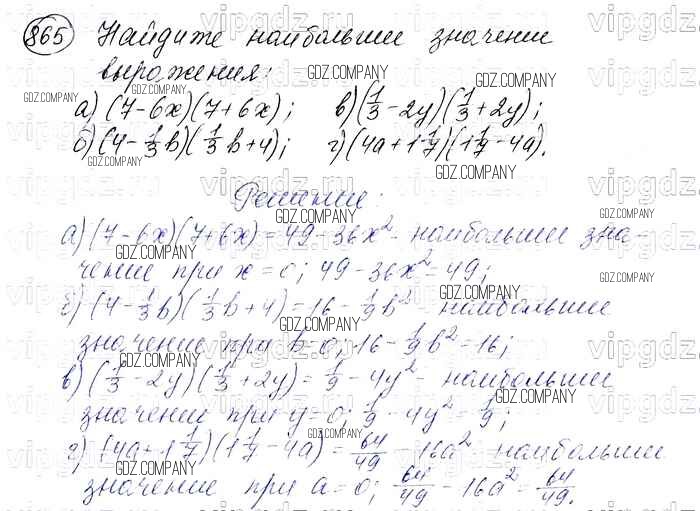 865 Найдите наибольшее значение
выражения:
а) (7-6x)(7+6x); в) (1/3-2y)(1/3+2y);
б) (4-1/3b)(1/3b+4); г) (4a+1 1/7)(1 1/7-4a).
Решение:
а) (7-6x)(7+6x)=49-36x² - наибольшее зна-
чение при x=0; 49-36x²=49;
б) (4-1/3b)(1/3b+4)=16-1/9b² - наибольшее
значение при b=0; 16-1/9b²=16;
в) (1/3-2y)(1/3+2y)=1/9-4y² - наибольшее
значение при y=0; 1/9-4y²=1/9;
г) (4a+1 1/7)(1 1/7-4a)=64/49-16a² наибольшее
значение при a=0; 64/49-16a²=64/49.